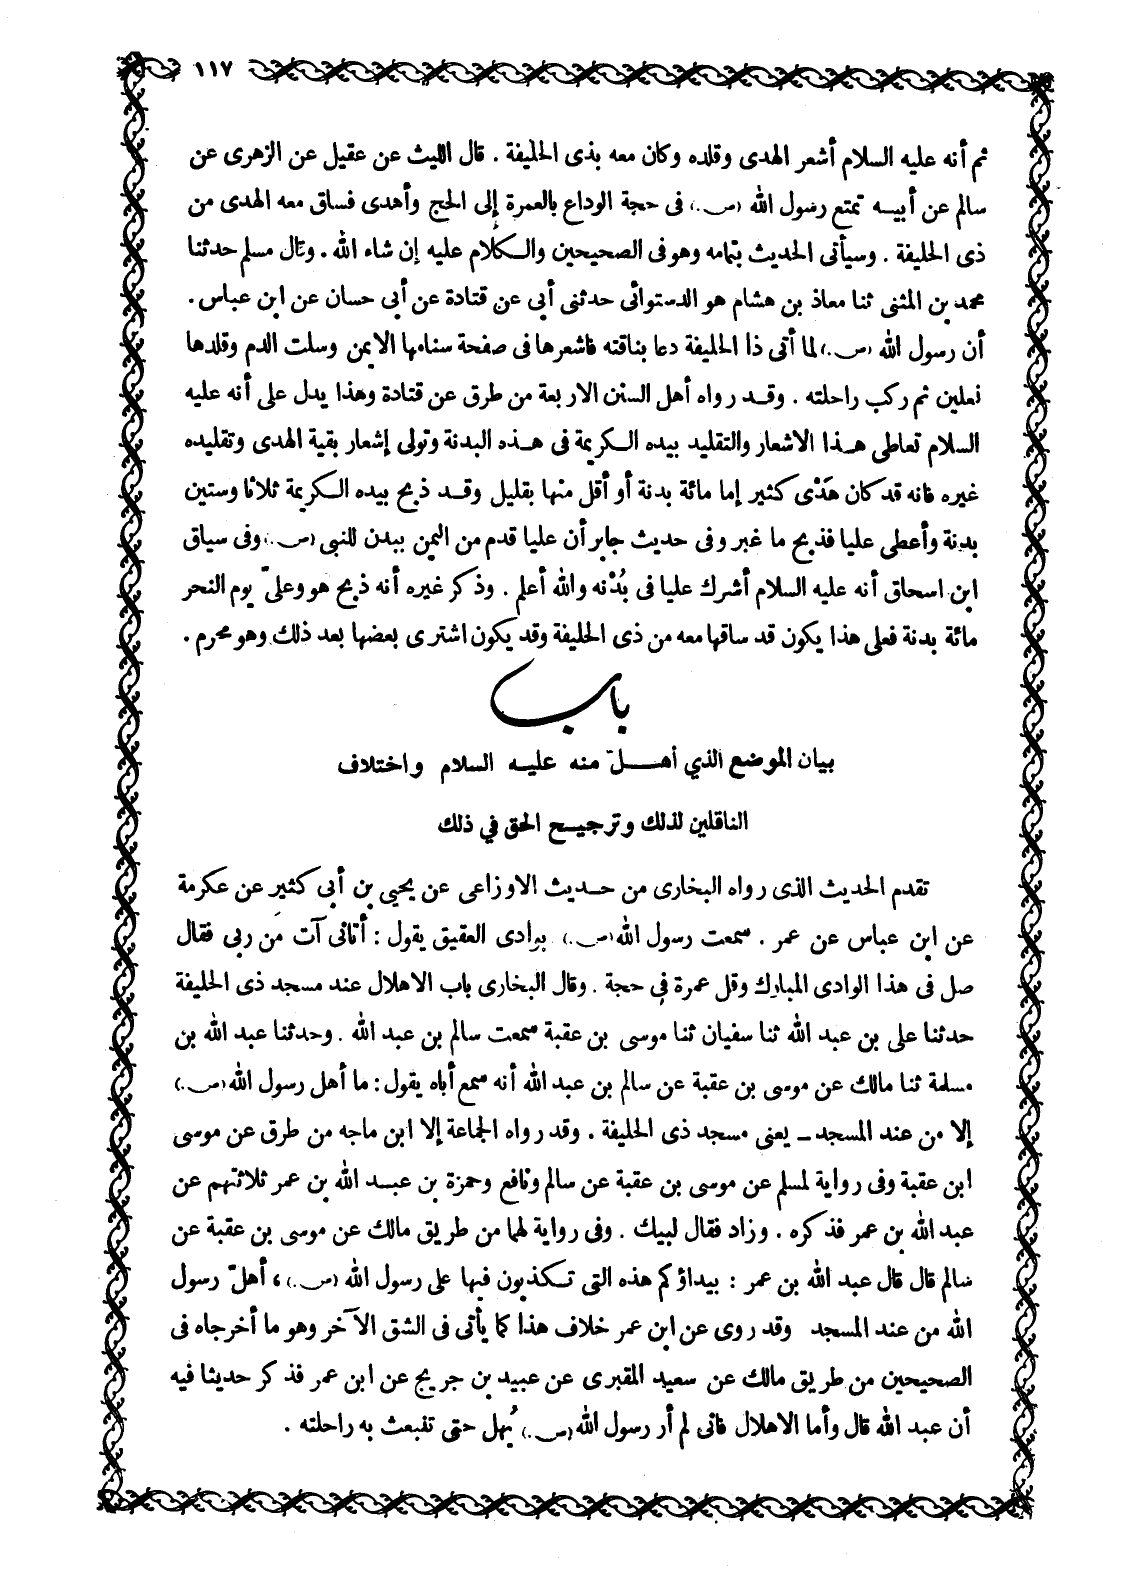 ١١٧
ثم أنه عليه السلام أشعر الهدى وقلده وكان معه بذى الحليفة . قال الليث عن عقيل عن الزهرى عن
سالم عن أبيــه تمتع رسول الله (ص.) فى حجة الوداع بالعمرة إلى الحج وأهدى فساق معه الهدى من
ذى الحليفة . وسيأتى الحديث بتمامه وهو فى الصحيحين والــكلام عليه إن شاء الله . وقال مسلم حدثنا
محمد بن المثنى ثنا معاذ بن هشام هو الدستوائى حدثنى أبى عن قتادة عن أبى حسان عن ابن عباس .
أن رسول الله (ص.) لما أتى ذا الحليفة دعا بناقته فاشعرها فى صفحة سنامها الايمن وسلت الدم وقلدها
نعلين ثم ركب راحلته . وقــد رواه أهل السنن الاربعة من طرق عن قتادة وهذا يدل على أنه عليه
السلام تعاطى هــذا الاشعار والتقليد بيده الــكريمة فى هــذه البدنة وتولى إشعار بقية الهدى وتقليده
غيره فانه قد كان هَدْى كثير إما مائة بدنة أو أقل منها بقليل وقــد ذبح بيده الــكريمة ثلاثا وستين
بدنة وأعطى عليا فذبح ما غبر وفى حديث جابر أن عليا قدم من اليمن ببدن للنبى (ص.) وفى سياق
ابن اسحاق أنه عليه السلام أشرك عليا فى بُدْنه والله أعلم . وذكر غيره أنه ذبح هو وعلىّ يوم النحر
مائة بدنة فعلى هذا يكون قد ساقها معه من ذى الحليفة وقد يكون اشترى بعضها بعد ذلك وهو محرم .
باب
بيان الموضع الذي أهــلّ منه عليه السلام واختلاف
الناقلين لذلك وترجيــح الحق في ذلك
تقدم الحديث الذى رواه البخارى من حــديث الاوزاعى عن يحيى بن أبى كثير عن عكرمة
عن ابن عباس عن عمر . سمعت رسول الله (ص.) بوادى العقيق يقول : أتانى آت من ربى فقال
صل فى هذا الوادى المبارك وقل عمرة في حجة . وقال البخارى باب الاهلال عند مسجد ذى الحليفة
حدثنا على بن عبد الله ثنا سفيان ثنا موسى بن عقبة سمعت سالم بن عبد الله . وحدثنا عبد الله بن
مسلمة ثنا مالك عن موسى بن عقبة عن سالم بن عبد الله أنه سمع أباه يقول : ما أهل رسول الله (ص.)
إلا من عند المسجد ــ يعنى مسجد ذى الحليفة . وقد رواه الجماعة إلا ابن ماجه من طرق عن موسى
ابن عقبة وفى رواية لمسلم عن موسى بن عقبة عن سالم ونافع وحمزة بن عبــد الله بن عمر ثلاثتهم عن
عبد الله بن عمر فذكره . وزاد فقال لبيك . وفى رواية لهما من طريق مالك عن موسى بن عقبة عن
سالم قال قال عبد الله بن عمر : بيداؤكم هذه التى تــكذبون فيها على رسول الله (ص.) ، أهلّ رسول
الله من عند المسجد وقد روى عن ابن عمر خلاف هذا كما يأتى فى الشق الآخر وهو ما أخرجاه فى
الصحيحين من طريق مالك عن سعيد المقبرى عن عبيد بن جريج عن ابن عمر فذكر حديثا فيه
أن عبد الله قال وأما الاهلال فانى لم أر رسول الله (ص.) يُهل حتى تنبعث به راحلته .